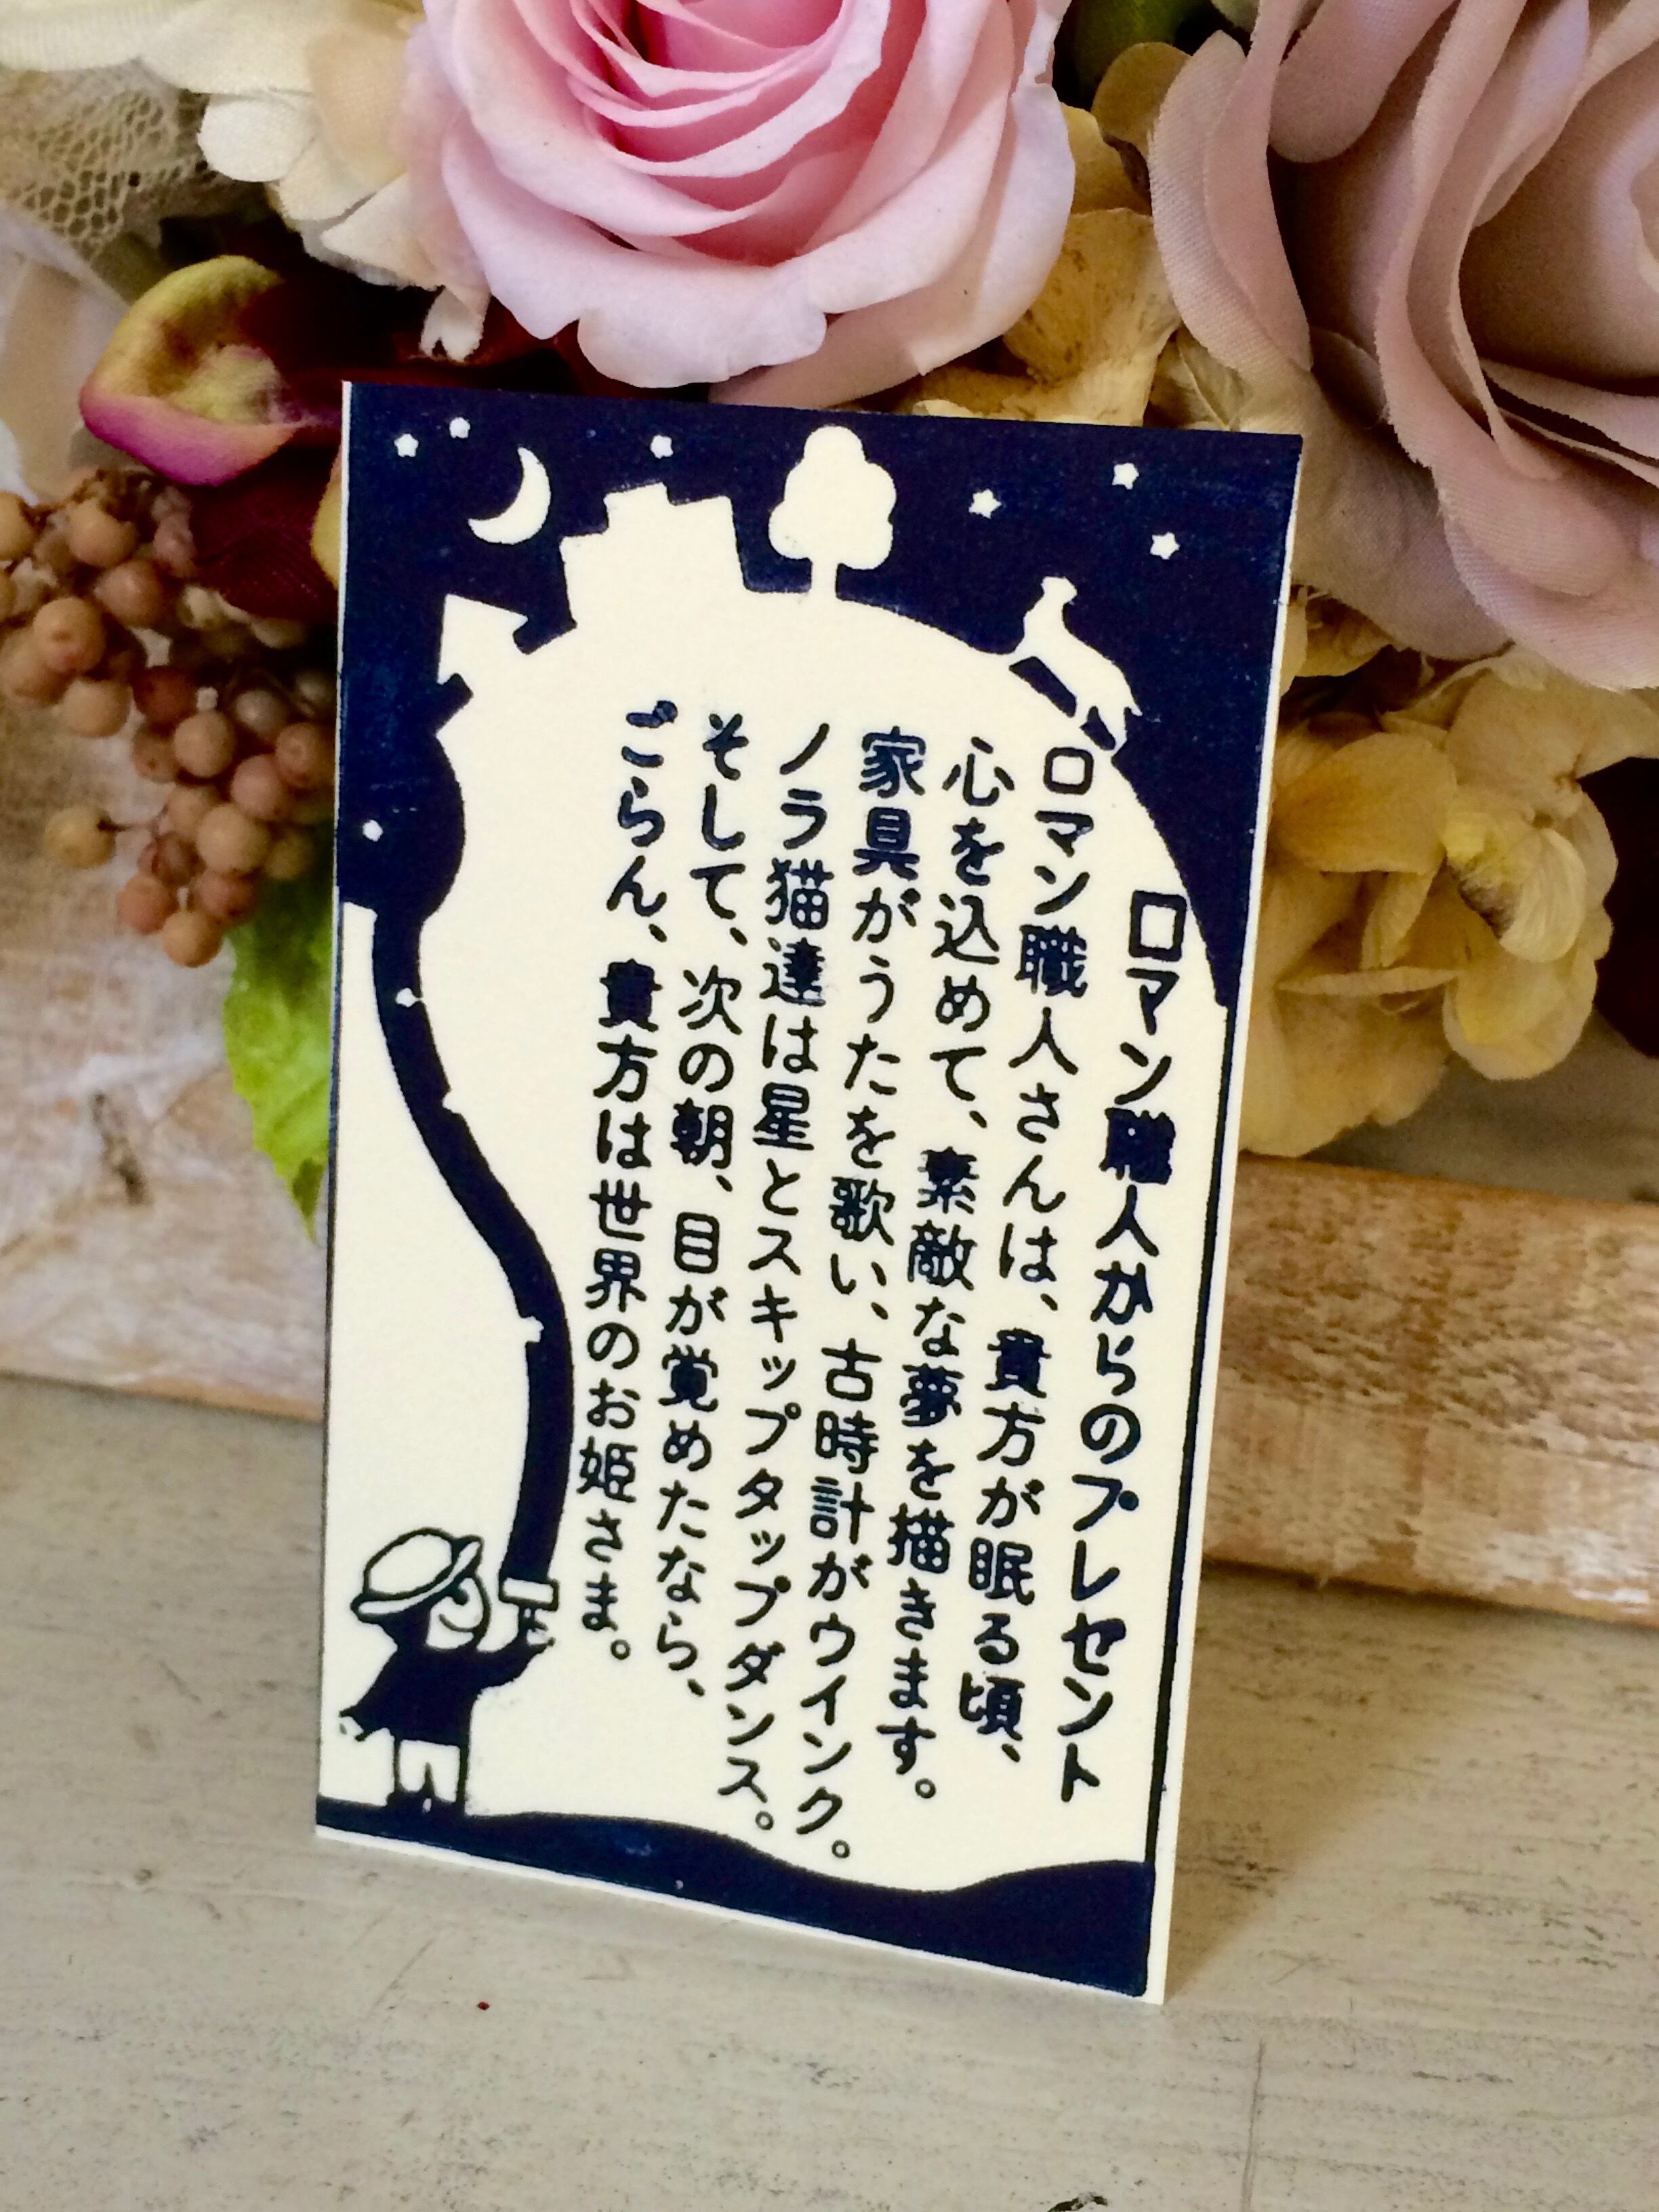 ロマン職人からのプレセント
ロマン職人さんは、貴方が眠る頃、
心を込めて、素敵な夢を描きます。
家具がうたを歌い、古時計がウインク。
ノラ猫達は星とスキップタップダンス。
そして、次の朝、目が覚めたなら、
ごらん、貴方は世界のお姫さま。